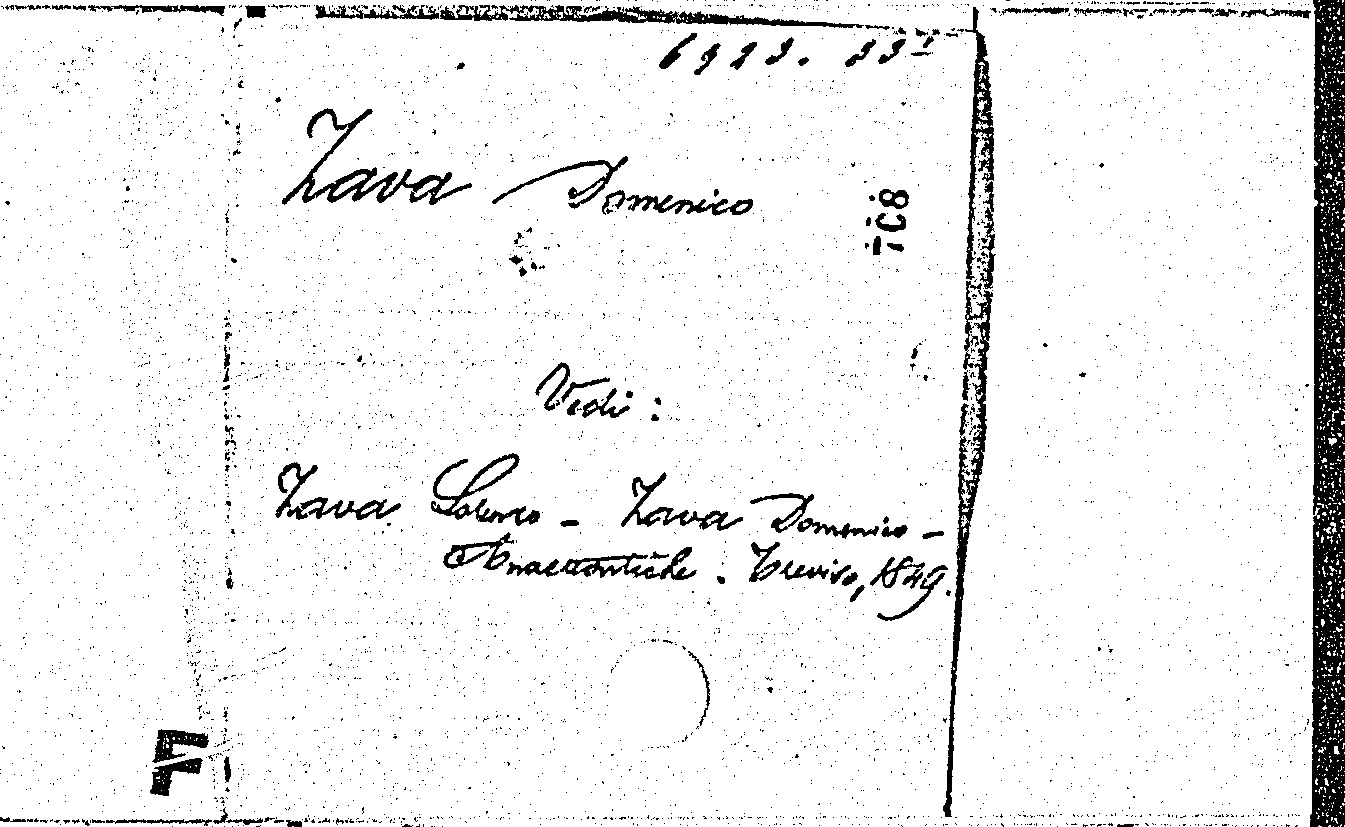 6923. 33¹
Zava Domenico
TC8
Vedi :
Zava Lorenzo - Zava Domenico -
Anacreontiche. Treviso, 1849.
F